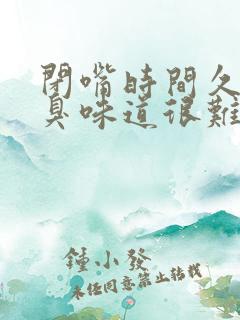 閉嘴時間久
臭味道很難
鍾小發
未經同意禁止轉載